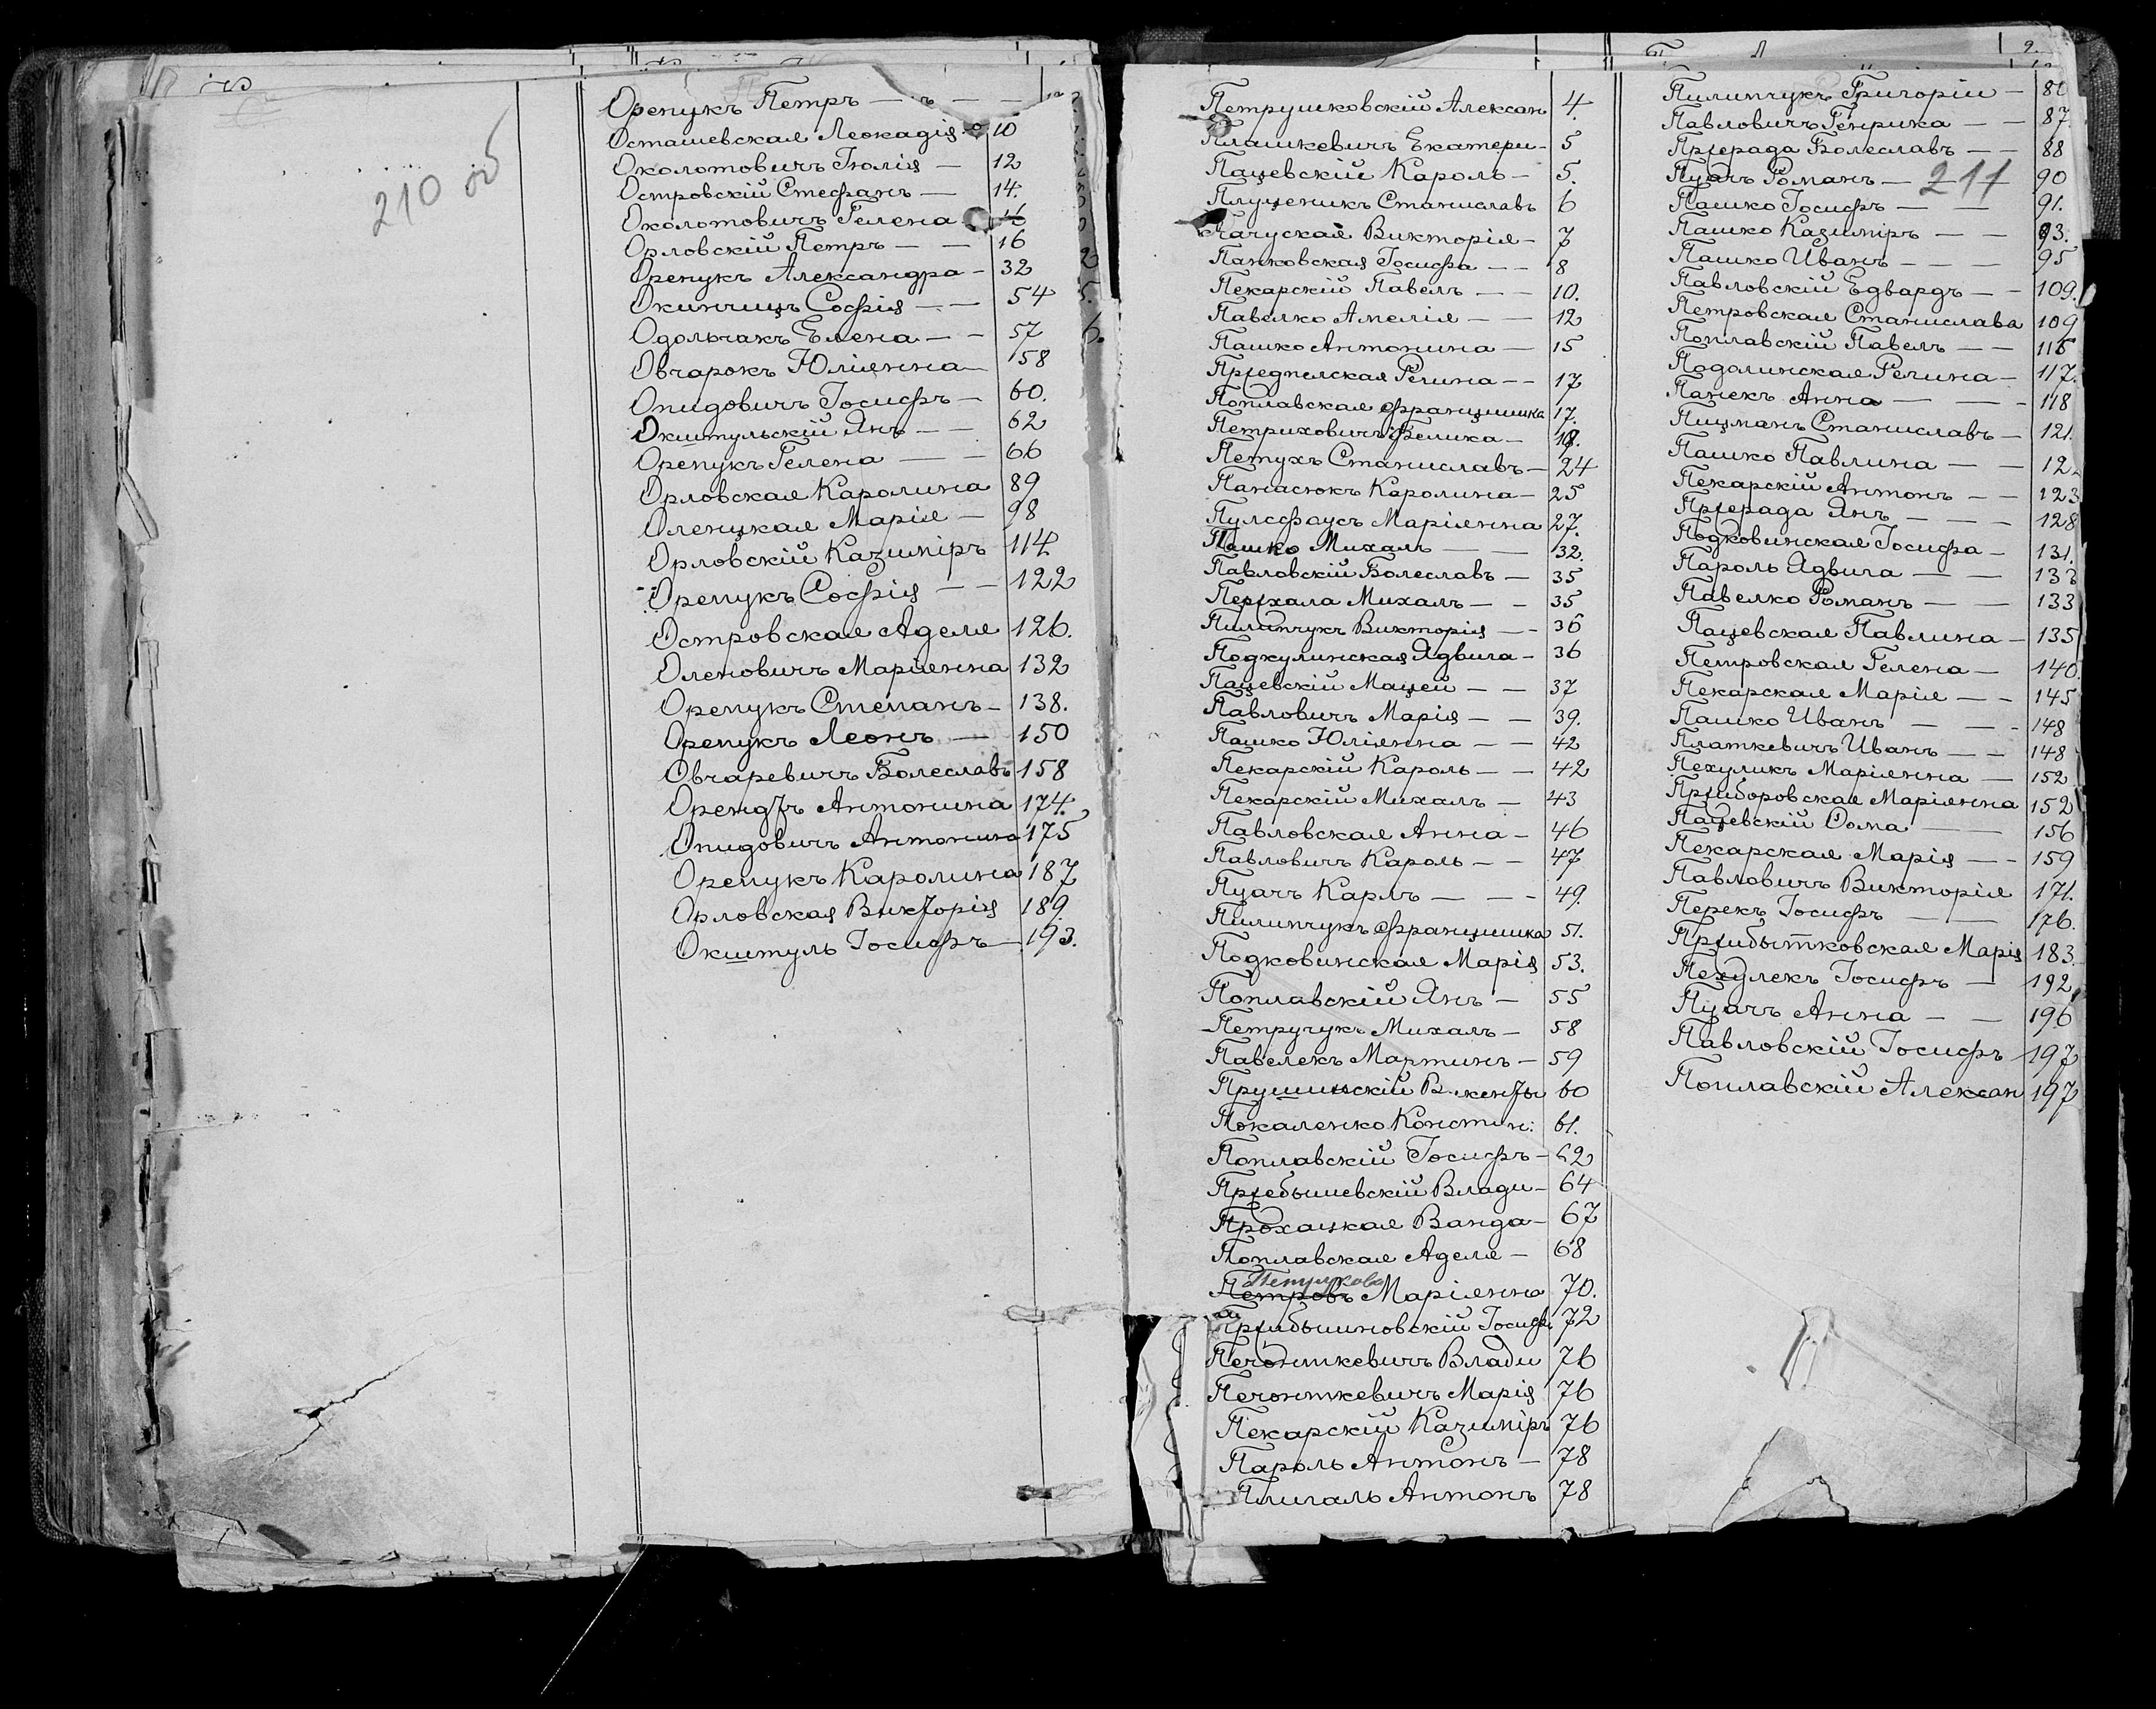 210 об
Орепукъ Петръ — ъ — —
Осташевская Леокадія 10
Околотовичъ Іюлія — 12
Островскій Стефанъ — 14.
Околотовичъ Гелена 16
Орловскій Петръ — — 16
Орепукъ Александра — 32
Окинчицъ Софія — — 54
Одольчакъ Елена — — 57
Овчарокъ Юліянна — 58
Опидовичъ Іосифъ — 60.
Окштульскій Янъ — — 62
Орепукъ Гелена — — 66
Орловская Каролина 89
Оленцкая Марія — 98
Орловскій Казиміръ 114
Орепукъ Софія — — 122
Островская Аделя 126.
Оленовичъ Маріянна 132
Орепукъ Степанъ — 138.
Орепукъ Леонъ — 150
Овчаревичъ Болеславъ 158
Орендзъ Антонина 174.
Опидовичъ Антонина 175
Орепукъ Каролина 187
Орловская Викторія 189.
Окштуль Іосифъ — 193.
Петрушковскій Алексан 4.
Плашкевичъ Екатери — 5
Пацевскій Кароль — 5.
Плуценикъ Станиславъ 6
Пачуская Викторія — 7
Панковская Іосифа — — 8
Пекарскій Павелъ — — 10.
Павелко Амелія — — 12
Пашко Антонина — 15
Пржедпелская Регина — — 17
Поплавская Францишка 17.
Петриховичъ Фелика — 18.
Петухъ Станиславъ — 24
Панасюкъ Каролина — 25
Пулсфаусъ Маріянна 27.
Пашко Михалъ — — 32
Павловскій Болеславъ — 35
Пержхала Михалъ — — 35
Пилипчукъ Викторія — — 36
Подкулинская Ядвига — 36
Пацевскій Мацей — — 37
Павловичъ Марія — — 39.
Пашко Юліянна — — 42
Пекарскій Кароль — — 42
Пекарскій Михалъ — 43
Павловская Анна — 46
Павловичъ Кароль — — 47
Пуачъ Карлъ — — — 49.
Пилипчукъ Францишка 51.
Подковинская Марія 53.
Поплавскій Янъ — 55
Петручукъ Михалъ — 58
Павелекъ Мартинъ — 59
Прушинскій Викенты 60
Покаленко Констан: 61.
Поплавскій Іосифъ — 62
Пржебышевскій Влади — 64
Прохацкая Ванда — 67
Поплавская Аделя — 68
Петрукова
Петровъ Маріянна 70.
Пржибышновскій Іосифъ 72
Печонткевичъ Влади 76
Печонткевичъ Марія 76
Пекарскій Казиміръ 76
Пароль Антонъ — 78
Плигаль Антонъ 78
П 2.
Пилипчукъ Григорій — 80
Павловичъ Генрика — — 87.
Пржерада Болеславъ — — 88
Пуачъ Романъ — 90
211
Пашко Іосифъ — — 91.
Пашко Казиміръ — — 93.
Пашко Иванъ — — — 95
Павловскій Едвардъ — — 109.
Петровская Станислава 109
Поплавскій Павелъ — — 116
Подолинская Регина — 117.
Панекъ Анна — — — 118
Пицманъ Станиславъ — 121.
Пашко Павлина — — 12
Пекарскій Антонъ — — 123
Пржерада Янъ — — — 128
Подковинская Іосифа — 131.
Пароль Ядвига — — 133
Павелко Романъ — — 133
Пацевская Павлина — 135
Петровская Гелена — 140.
Пекарская Марія — — 145
Пашко Иванъ — — — 148
Платкевичъ Иванъ — — 148
Пехуликъ Маріянна — 152
Пржиборовская Маріянна 152
Пацевскій Ѳома — — 156
Пекарская Марія — — 159
Павловичъ Викторія 171.
Перекъ Іосифъ — — 176.
Пржибытковская Марія 183.
Пехулекъ Іосифъ — 192
Пуачъ Анна — — 196
Павловскій Іосифъ 197
Поплавскій Алексан 197